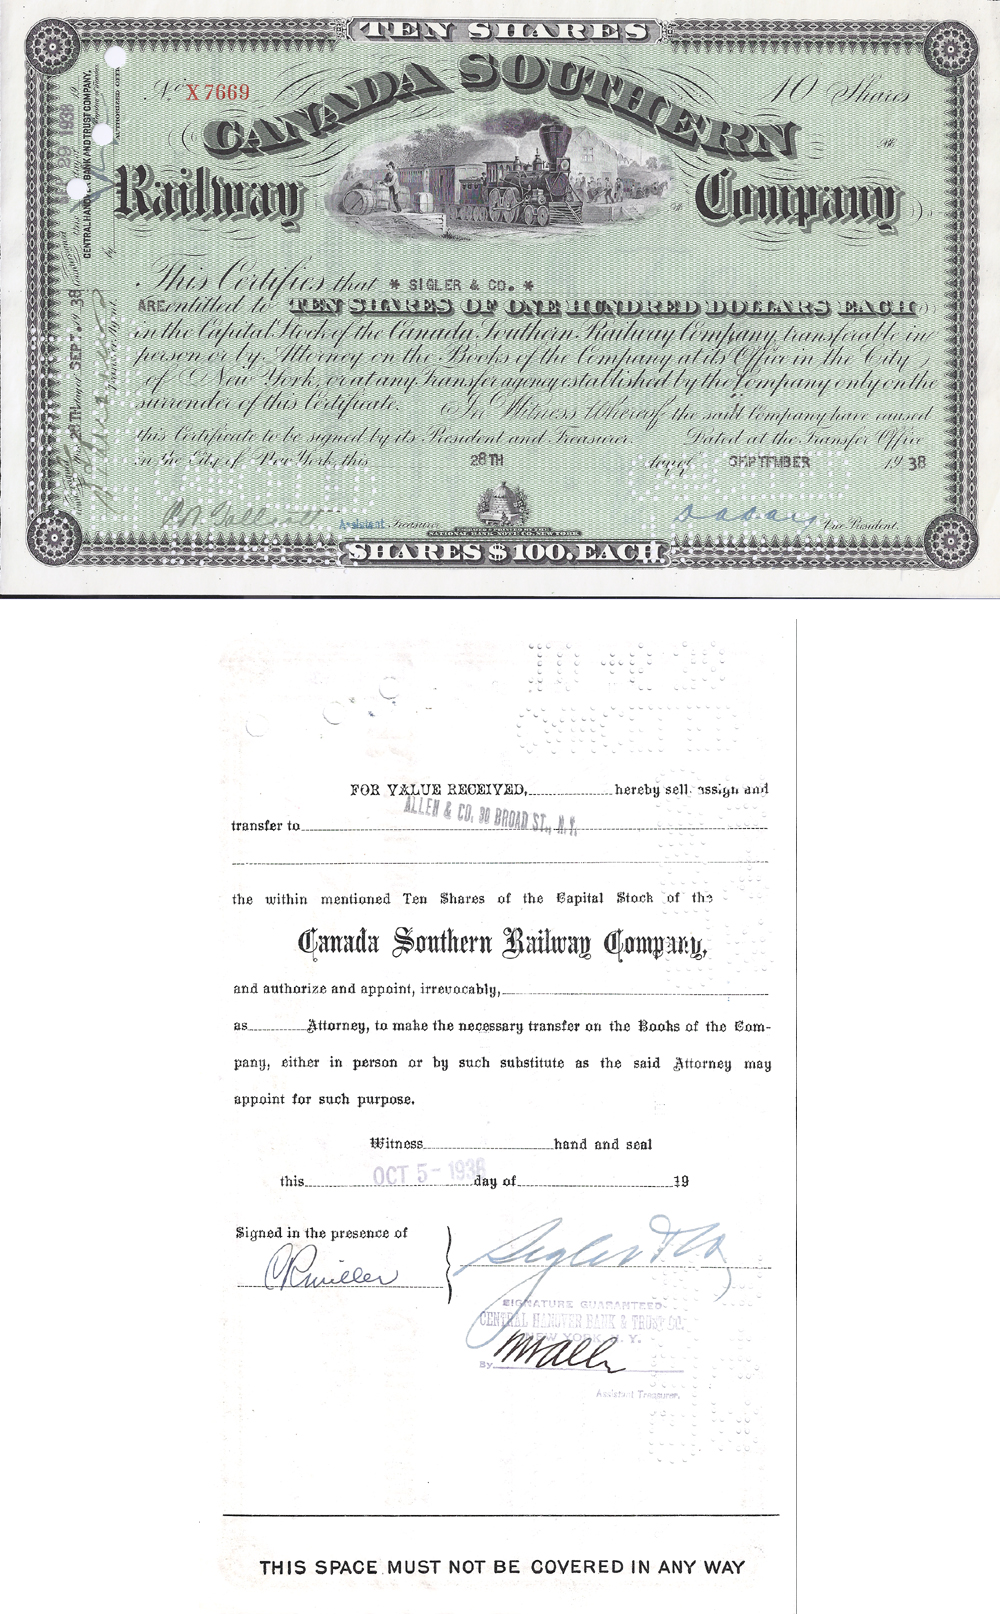 TEN SHARES
No. X7669
10 Shares
CANADA SOUTHERN
Railway Company
This Certifies that * SIGLER & CO. *
ARE entitled to TEN SHARES OF ONE HUNDRED DOLLARS EACH
in the Capital Stock of the Canada Southern Railway Company, transferable in
person or by Attorney on the Books of the Company at its Office in the City
of New York, or at any Transfer agency established by the Company only on the
surrender of this Certificate. In Witness Whereof the said Company have caused
this Certificate to be signed by its President and Treasurer. Dated at the Transfer Office
in the City of New York, this 28TH day of SEPTEMBER 1938
Assistant Treasurer.
Vice President.
NATIONAL BANK NOTE CO. NEW YORK
SHARES $100. EACH.
28TH day of SEPT. 1938
Transfer Agent.
Countersigned
29 1938
CENTRAL HANOVER BANK AND TRUST COMPANY,
by
AUTHORIZED OFFICER
CANCELLED
CANCELLED
FOR VALUE RECEIVED, hereby sell, assign and
transfer to ALLEN & CO. 30 BROAD ST., N.Y.
the within mentioned Ten Shares of the Capital Stock of the
Canada Southern Railway Company,
and authorize and appoint, irrevocably,
as Attorney, to make the necessary transfer on the Books of the Com-
pany, either in person or by such substitute as the said Attorney may
appoint for such purpose.
Witness hand and seal
this OCT 5 - 1938 day of 19
Signed in the presence of
C R Miller
Sigler & Co
SIGNATURE GUARANTEED
CENTRAL HANOVER BANK & TRUST CO.
NEW YORK, N. Y.
By
Assistant Treasurer.
THIS SPACE MUST NOT BE COVERED IN ANY WAY